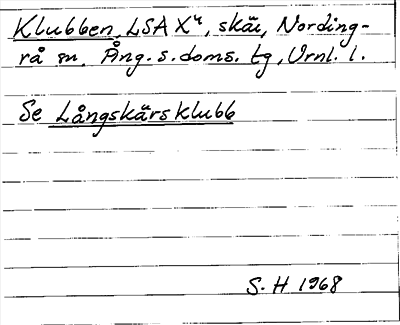 Klubben, LSA X⁴, skär, Nording-
rå sn, Ång. s. doms. tg, Vrnl. l.
Se Långskärsklubb
S. H 1968